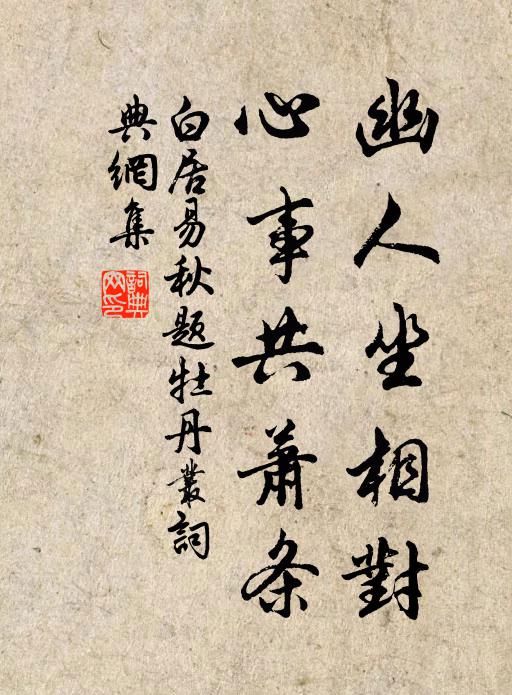 幽人坐相對
心事共蕭条
白居易秋题牡丹叢詞
典網集
詞典
网印